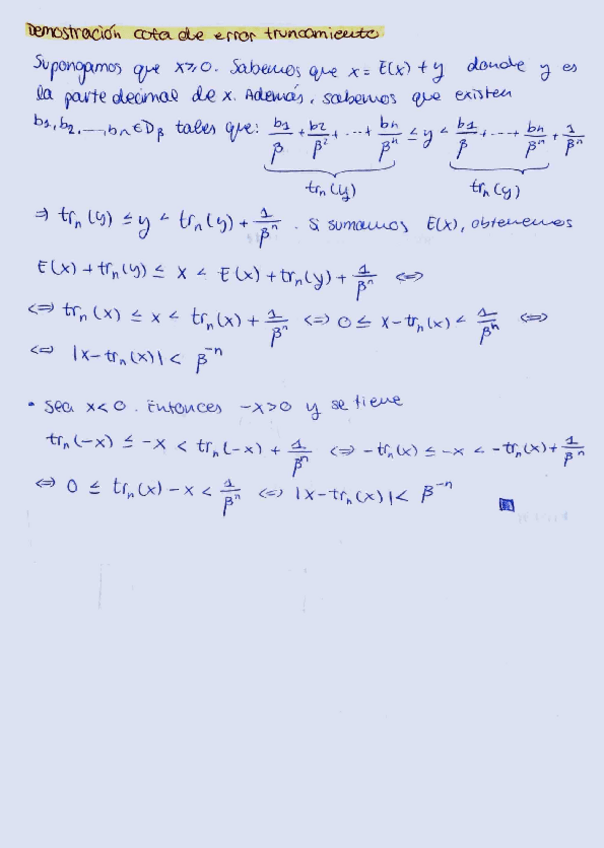 Demostración cota de error truncamiento
Supongamos que x⩾0. Sabemos que x = E(x) + y donde y es
la parte decimal de x. Además, sabemos que existen
b₁, b₂, ..., bₙ ∈ D_β tales que: b₁/β + b₂/β² + ... + bₙ/βⁿ ≤ y < b₁/β + ... + bₙ/βⁿ + 1/βⁿ
trₙ(y) trₙ(y)
⇒ trₙ(y) ≤ y < trₙ(y) + 1/βⁿ. Si sumamos E(x), obtenemos
E(x) + trₙ(y) ≤ x < E(x) + trₙ(y) + 1/βⁿ ⇔
⇔ trₙ(x) ≤ x < trₙ(x) + 1/βⁿ ⇔ 0 ≤ x - trₙ(x) < 1/βⁿ ⇔
⇔ |x - trₙ(x)| < β⁻ⁿ
• Sea x < 0. Entonces -x > 0 y se tiene
trₙ(-x) ≤ -x < trₙ(-x) + 1/βⁿ ⇔ -trₙ(x) ≤ -x < -trₙ(x) + 1/βⁿ
⇔ 0 ≤ trₙ(x) - x < 1/βⁿ ⇔ |x - trₙ(x)| < β⁻ⁿ